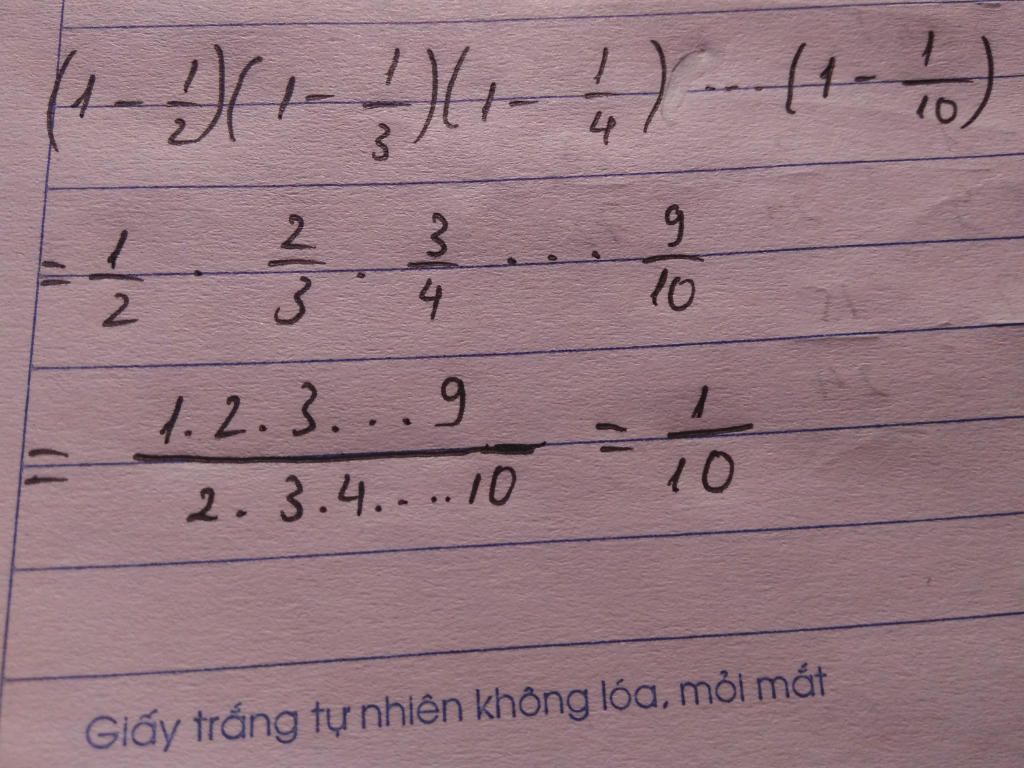 (1 - 1/2)(1 - 1/3)(1 - 1/4) .... (1 - 1/10)
= 1/2 . 2/3 . 3/4 . . . 9/10
= 1.2.3...9 / 2.3.4....10 = 1/10
Giấy trắng tự nhiên không lóa, mỏi mắt